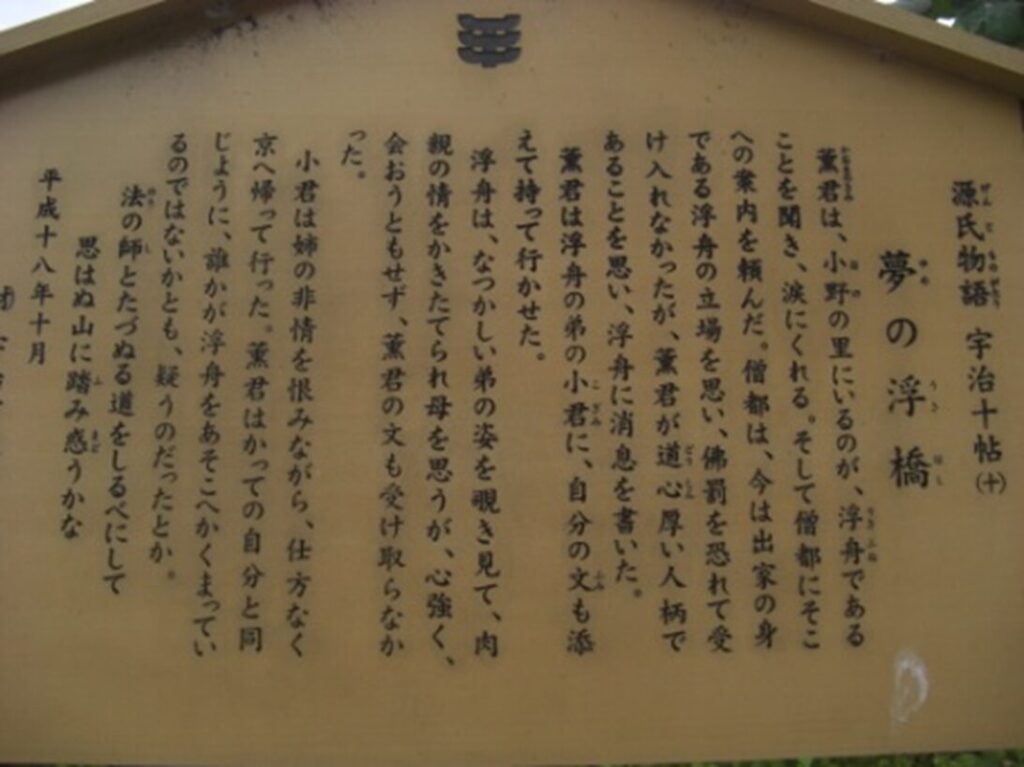 源氏物語 宇治十帖(十)
夢の浮橋
薫君は、小野の里にいるのが、浮舟である
ことを聞き、涙にくれる。そして僧都にそこ
への案内を頼んだ。僧都は、今は出家の身
である浮舟の立場を思い、佛罰を恐れて受
け入れなかったが、薫君が道心厚い人柄で
あることを思い、浮舟に消息を書いた。
薫君は浮舟の弟の小君に、自分の文も添
えて持って行かせた。
浮舟は、なつかしい弟の姿を覗き見て、肉
親の情をかきたてられ母を思うが、心強く、
会おうともせず、薫君の文も受け取らなか
った。
小君は姉の非情を恨みながら、仕方なく
京へ帰って行った。薫君はかっての自分と同
じように、誰かが浮舟をあそこへかくまってい
るのではないかとも、疑うのだったとか。
法の師とたづぬる道をしるべにして
思はぬ山に踏み惑うかな
平成十八年十月